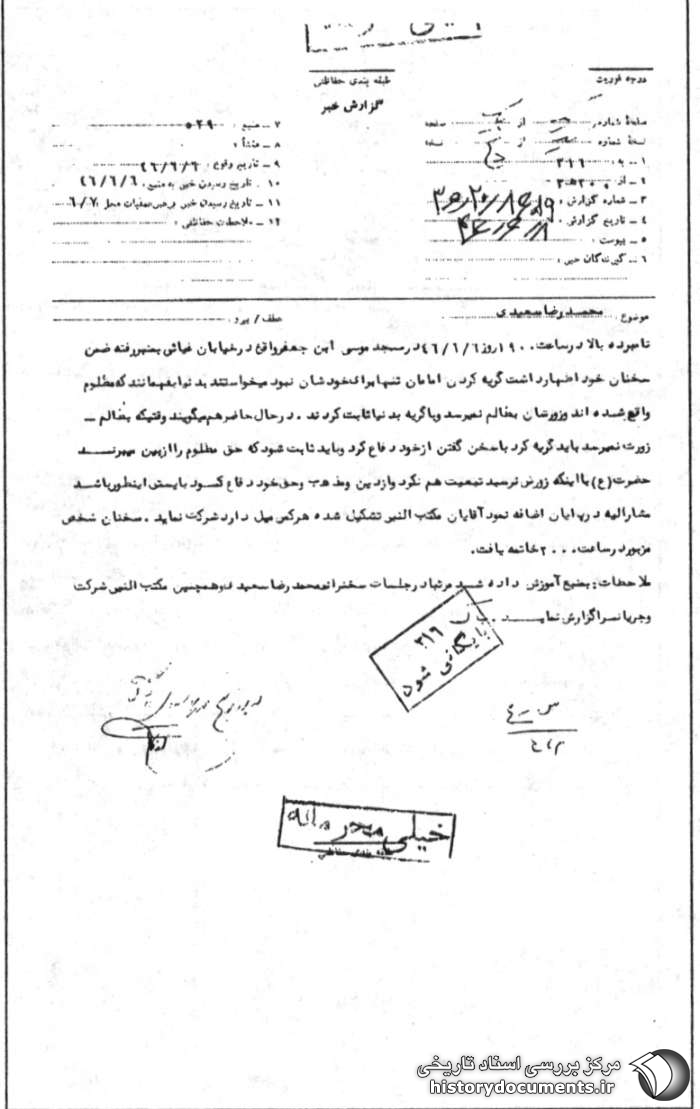 درجه فوریت
طبقه بندی حفاظتی
گزارش خبر
صفحهٔ شماره از صفحه
نسخهٔ شماره از نسخه
۱ ـ به : ۳۱۶
۲ ـ از
۳ ـ شماره گزارش :
۴ ـ تاریخ گزارش :
۵ ـ پیوست :
۶ ـ گیرندگان خبر :
۷ ـ منبع : ۵۲۹
۸ ـ منشأ :
۹ ـ تاریخ وقوع : ۴۶/۶/۶
۱۰ . تاریخ رسیدن خبر به منبع : ۴۶/۶/۶
۱۱ ـ تاریخ رسیدن خبر به رهبر عملیات محل ۶/۷
۱۲ ـ ملاحظات حفاظتی :
موضوع : محمد رضا سعیدی
عطف / پیرو :
نامبرده بالا در ساعت ۱۹۰۰ روز ۴۶/۶/۶ در مسجد موسی ابن جعفر واقع در خیابان غیاثی بمنبر رفته ضمن
سخنان خود اظهار داشت گریه کردن امامان تنها برای خودشان نبود میخواستند بدنیا بفهمانند که مظلوم
واقع شده اند و زورشان بظالم نمیرسد و با گریه بدنیا ثابت کردند . در حال حاضر هم میگویند وقتیکه بظالم ـ
زورت نمیرسد باید گریه کرد با سخن گفتن از خود دفاع کرد و باید ثابت شود که حق مظلوم را از بین میبرنـــد
حضرت (ع) با اینکه زورش نرسید تبعیت هم نکرد و از دین و مذهب و حق خود دفاع کرد و بایستی اینطور باشد
مشارالیه در پایان اضافه نمود آقایان مکتب النبی تشکیل شده هر کس میل دارد شرکت نماید . سخنان شخص
مزبور در ساعت ۲۰۰۰ خاتمه یافت .
ملاحظات : بمنبع آموزش داده شـــد مرتبا در جلسات سخنرانی محمد رضا سعیدی و همچنین مکتب النبی شرکت
و جریانات را گزارش نمایــــد .
۳۱۶
بایگانی شود
خیلی محرمانه
طبقه بندی حفاظتی
مرکز بررسی اسناد تاریخی
historydocuments.ir